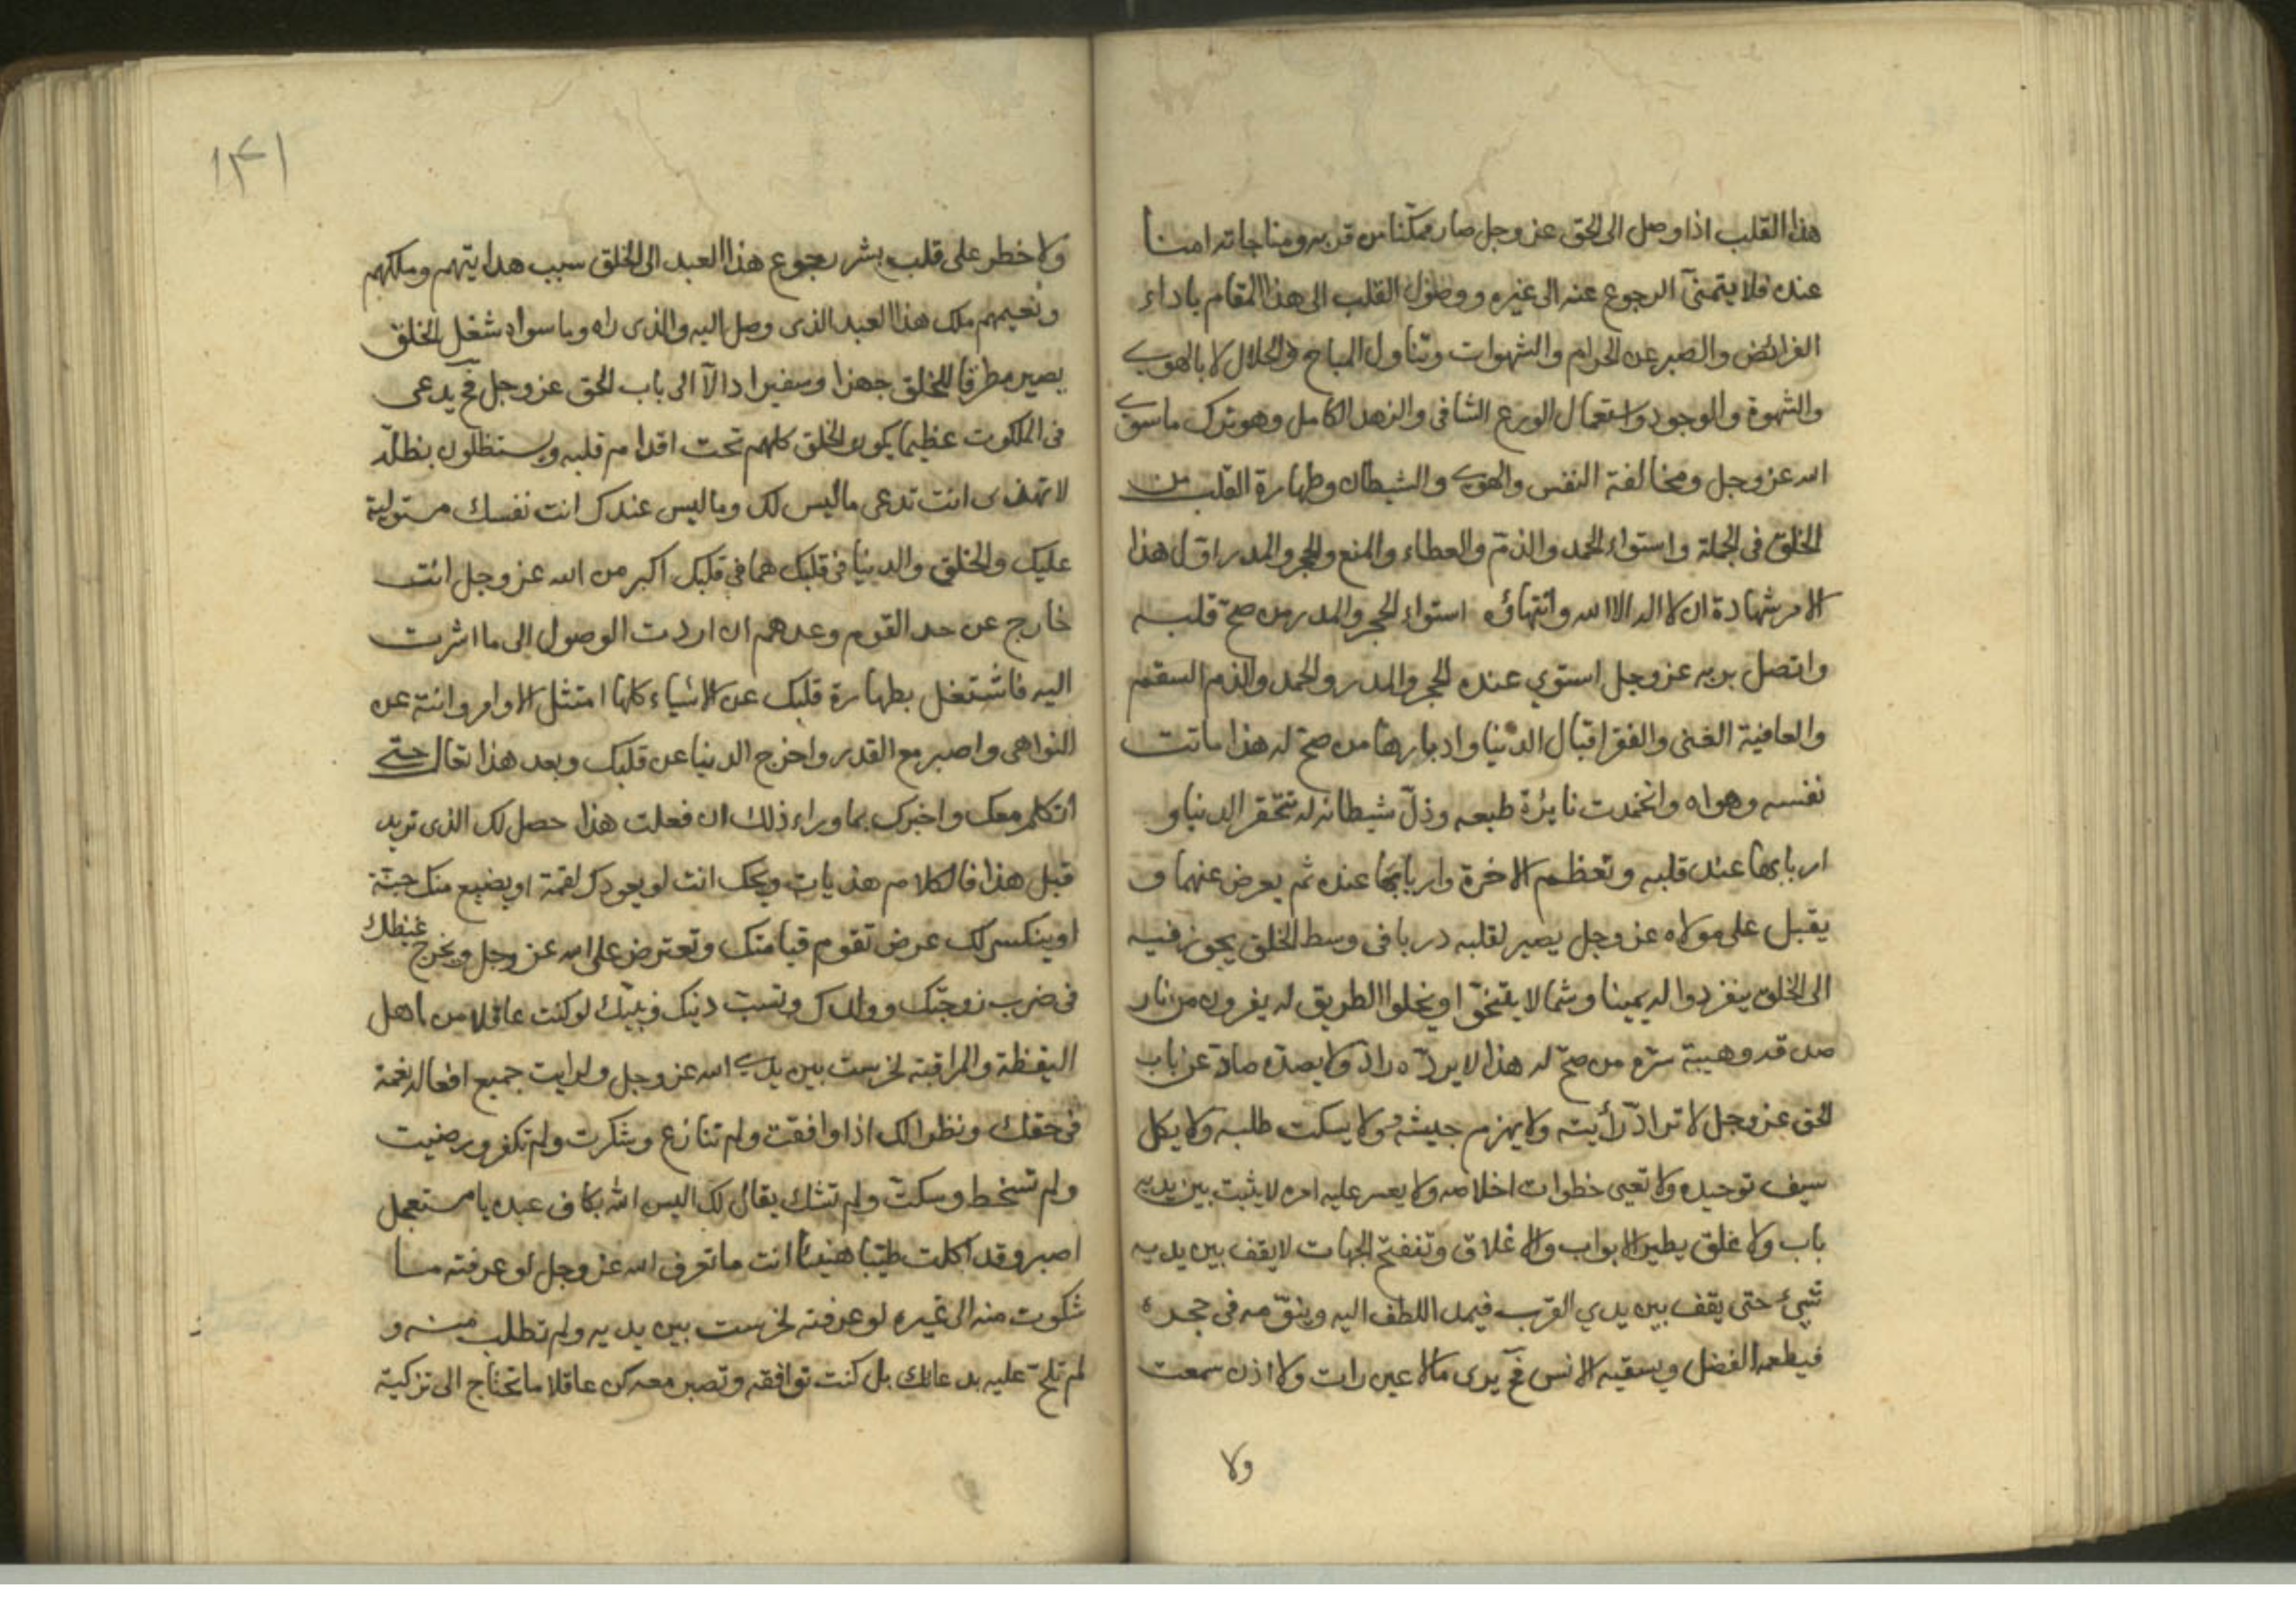 هذا القلب اذا وصل الى الحق عز وجل صار ممكّنا من قربه ومناجاته امنا
عنده فلا يتمنّى الرجوع عنه الى غيره ووصول القلب الى هذا المقام باداء
الفرائض والصبر عن الحرام والشهوات وتناول المباح والحلال لا بالهوى
والشهوة والوجود واستعمال الورع الشافى والزهد الكامل وهو ترك ما سوى
الله عز وجل ومخالفة النفس والهوى والشيطان وطهارة القلب من
الخلق فى الجملة واستواء الحمد والذمّ والعطاء والمنع والحجر والمدر اوّل هذا
الامر شهادة ان لا اله الا الله وانتهاؤه استواء الحجر والمدر من صحّ قلبه
واتصل بربه عز وجل استوي عنده الحجر والمدر والحمد والذم السقم
والعافية الغنى والفقر اقبال الدنيا وادبارها من صحّ له هذا ماتت
نفسه وهواه وانخمدت نايرة طبعه وذلّ شيطانه له تتحقر الدنيا و
اربابها عند قلبه وتعظم الاخرة واربابها عنده ثم يعرض عنهما و
يقبل على مولاه عز وجل يصير لقلبه دربا فى وسط الخلق يجوز فيه
الى الحق ينفردوا له يمينا وشمالا يتنحّوا ويخلوا الطريق له يفرون من نار
صدقه وهيبة سرّه من صحّ له هذا لا يردّه رادّ ولا يصدّه صادّ عن باب
الحق عز وجل لا ترادّ رأيته ولا يهزم جيشه ولا يسكت طلبه ولا يكل
سيف توحيده ولا تعيى خطوات اخلاصه ولا يعسر عليه امره لا يثبت بين يديه
باب ولا غلق يطير الابواب والاغلاق وتنفتح الجهات لا يقف بين يديه
شيئ حتى يقف بين يدي القرب فيمد اللطف اليه وينوّمه فى حجره
فيطعمه الفضل ويسقيه الانس فح يرى ما لا عين رات ولا اذن سمعت
ولا
١٣١
ولا خطر على قلب بشر رجوع هذا العبد الى الخلق سبب هدايتهم وملكهم
ونعيمهم ملك هذا العبد الذى وصل اليه والذى راه وما سواه شغل الخلق
يصير مطرقا للخلق جهزا وسفيرا دالّا الى باب الحق عز وجل فح يدعى
فى الملكوت عظيما يكون الخلق كلهم تحت اقدام قلبه ويستظلون بظلّه
لا تهذى انت تدعى ما ليس لك وما ليس عندك انت نفسك مستولية
عليك والخلق والدنيا فى قلبك هما فى قلبك اكبر من الله عز وجل انت
خارج عن حد القوم وعدهم ان اردت الوصول الى ما اشرت
اليه فاشتغل بطهارة قلبك عن الاشياء كلها امتثل الاوامر وانته عن
النواهى واصبر مع القدر واخرج الدنيا عن قلبك وبعد هذا تعال حتى
اتكلم معك واخبرك بما وراء ذلك ان فعلت هذا حصل لك الذى تريد
قبل هذا فالكلام هذيات ويحك انت لو يعوذك لقمة او يضيع منك حبّة
او ينكسر لك عرض تقوم قيامتك وتعترض على الله عز وجل ويخرج غيظك
فى ضرب زوجتك وولدك وتسبّ دينك ونبيّك لو كنت عاقلا من اهل
اليقظة والمراقبة لخرست بين يدى الله عز وجل ولرايت جميع افعاله نعمة
فى حقك ونظرا لك اذا وافقت ولم تنازع وشكرت ولم تكفر ورضيت
ولم تسخط وسكتّ ولم تشك يقال لك اليس الله بكاف عبده يا مستعجل
اصبر وقد اكلت طيّبا هنيئا انت ما تعرف الله عز وجل لو عرفته ما
شكوت منه الى غيره لو عرفته لخرست بين يديه ولم تطلب منه و
لم تلحّ عليه بدعائك بل كنت توافقه وتصبر معه كن عاقلا ما تحتاج الى تزكية